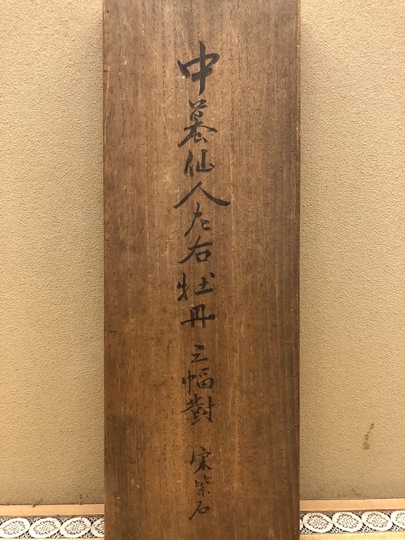 中蟇仙人左右牡丹三幅對 宋紫石